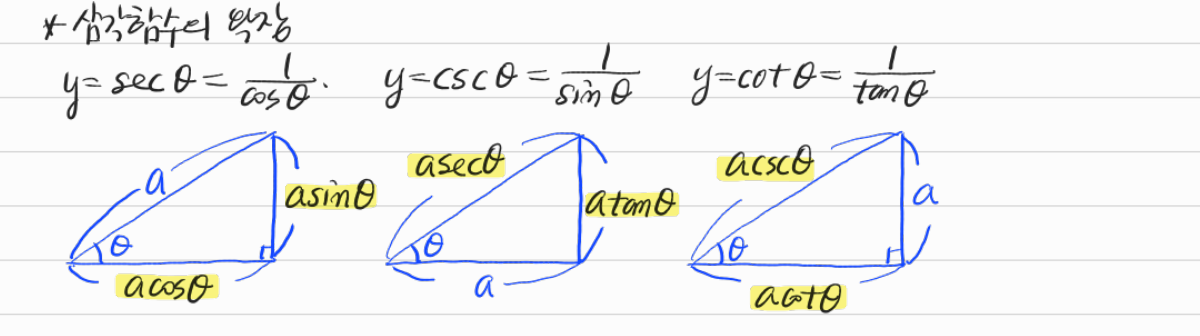 * 삼각함수의 확장
y = sec θ = 1/cos θ. y = csc θ = 1/sin θ y = cot θ = 1/tan θ
a asecθ acscθ
asinθ atanθ a
θ θ θ
acosθ a acotθ